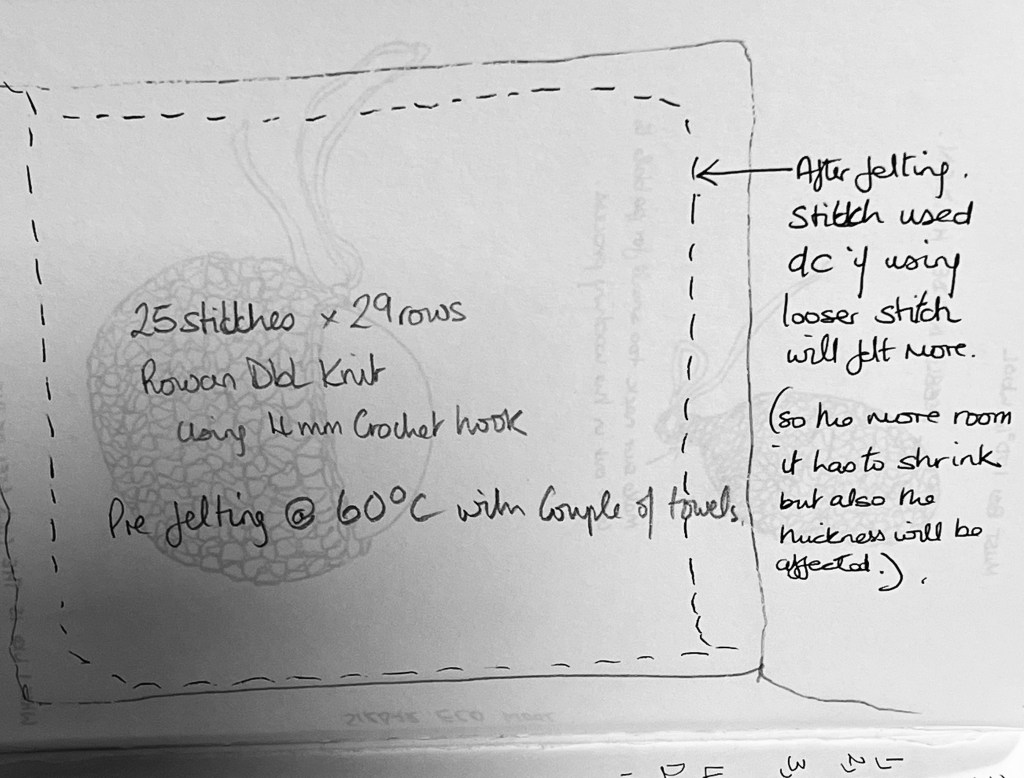 25 stittches x 29 rows
Rowan Dbl Knit
using 4mm Crochet hook
Pre felting @ 60°C with Couple of towels.
After felting.
Stittch used
dc if using
looser stitch
will felt more.
(so the more room
it has to shrink
but also the
thickness will be
affected.).